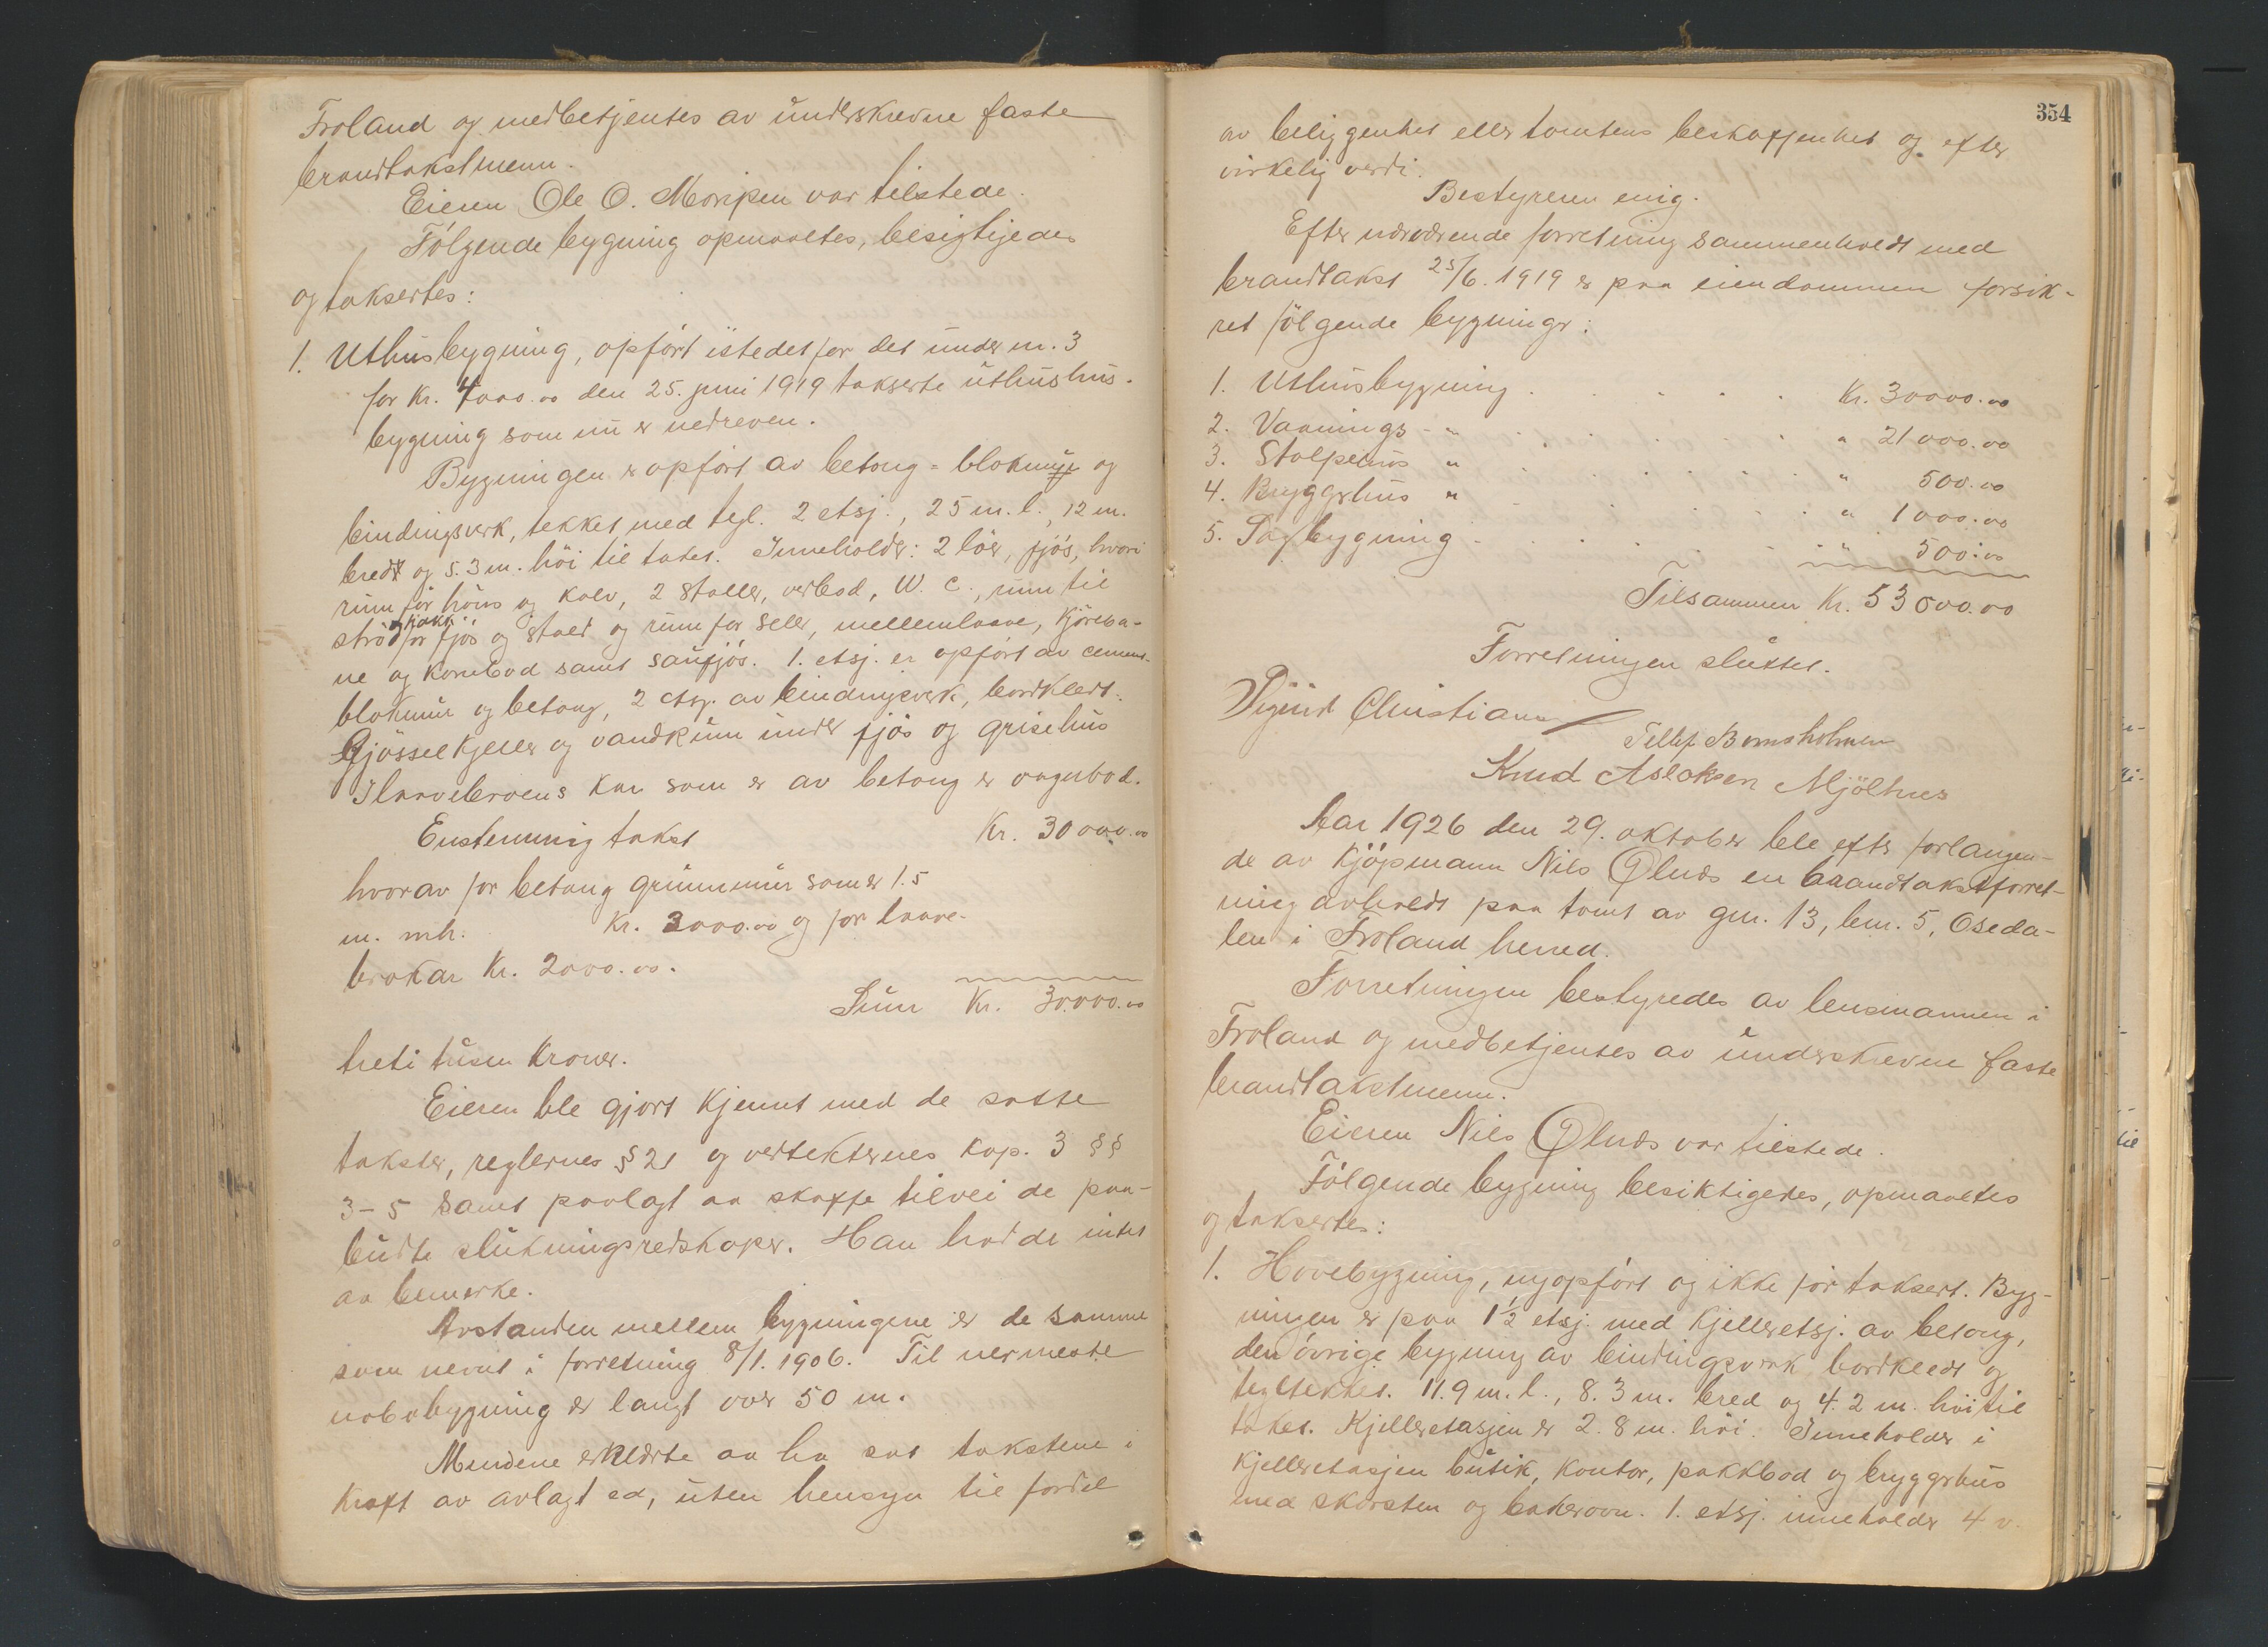 Froland og medbetjentes av underskrevne faste
brandtakstmenn.
Eieren Ole O. Moripen var tilstede.
Følgende bygning opmaaltes, besigtigedes
og taksertes:
1. Uthusbygning, opført istedet for det under nr. 3
for kr. 4000.00 den 25. juni 1919 takserte uthushus-
bygning som nu er nedreven.
Bygningen er opført av betong = blokmur og
bindingsverk, tekket med tegl. 2 etsj., 25 m. l., 12 m.
bredt og 5.3 m. høi til taket. Inneholder: 2 løer, fjøs, hvori
rum for høns og kalv, 2 staller, vedbod, W. C., rum til
strø og hakk for fjøs og stald og rum for seler, mellemlaave, kjøreba-
ne og kornbod samt saufjøs. 1. etsj. er opført av cement-
blokmur og betong, 2 etsj. av bindingsverk, bordkledt.
Gjødselkjeller og vandkum under fjøs og grisehus
I laavebroens kar som er av betong er vognbod.
Enstemmig takst Kr. 30000.00
hvorav for betong grunnmur som er 1.5
m. m h. Kr. 3000.00 og for laave-
brokar Kr. 2000.00.
Sum Kr. 30.000.00
treti tusen kroner.
Eieren ble gjort kjennt med de satte
takster, reglernes § 21 og vedtekternes kap. 3 §§
3-5 samt paalagt aa skaffe tilvei de paa-
budte slukningsredskaper. Han hadde intet
aa bemerke.
Avstanden mellem bygningene er de samme
som nevnt i forretning 8/1. 1906. Til nermeste
nabobygning er langt over 50 m.
Mendene erklærte aa ha sat takstene i
kraft av avlagt ed, uten hensyn til fordel
354
av beliggenhet eller tomtens beskaffenhet og efter
virkelig verdi.
Bestyreren enig.
Efter nærværende forretning sammenholdt med
brandtakst 25/6. 1919 er paa eiendommen forsik-
ret følgende bygninger:
1. Uthusbygning . . . . . Kr. 30000.00
2. Vaanings - " . . . . . " 21000.00
3. Stolpehus " . . . . . " 500.00
4. Bryggerhus " . . . . . " 1000.00
5. Sagbygning . . . . . " 500.00
Tilsammen Kr. 53000.00
Forretningen sluttet.
Sigurd Christiansen
Tellef Bomsholmen
Knud Aslaksen Mjölhus
Aar 1926 den 29. oktober ble efter forlangen-
de av kjøpmann Nils Ølnes en brandtakstforret-
ning avholdt paa tomt av gnr. 13, bnr. 5, Oseda-
len i Froland herred.
Forretningen bestyredes av lensmannen i
Froland og medbetjentes av underskrevne faste
brandtakstmenn.
Eieren Nils Ølnes var tilstede.
Følgende bygning besiktigedes, opmaaltes
og taksertes:
1. Hovebygning, nyopført og ikke før taksert. Byg-
ningen er paa 1 1/2 etsj. med kjelleretsj. av betong,
den øvrige bygning av bindingsverk, bordkledt og
tegltekket. 11.9 m. l., 8.3 m. bred og 4.2 m. høi til
taket. Kjelleretasjen er 2.8 m. høi. Inneholder i
kjelleretasjen butik, kontor, pakkbod og bryggerhus
med skorsten og bakerovn. 1. etsj. inneholder 4 v.